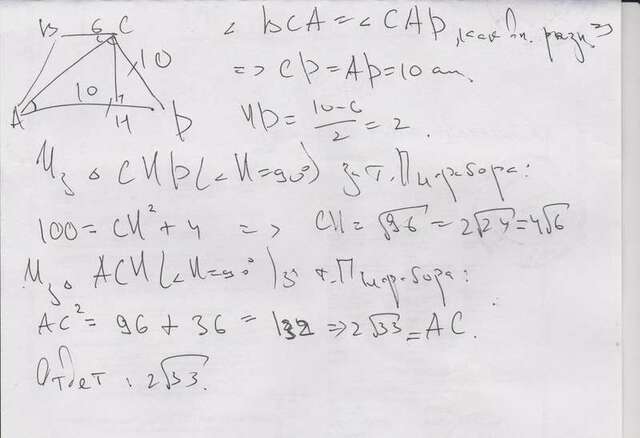 B 6 C
10
10
A H D
∠ BCA = ∠ CAD, как вн. разн =>
=> CD = AD = 10 см.
HD = (10-6)/2 = 2.
Из △ CHD (∠H=90°) з т. Пифагора:
100 = CH² + 4 => CH = √96 = 2√24 = 4√6
Из △ ACH (∠H=90°) з т. Пифагора:
AC² = 96 + 36 = 132 => 2√33 = AC.
Ответ: 2√33.